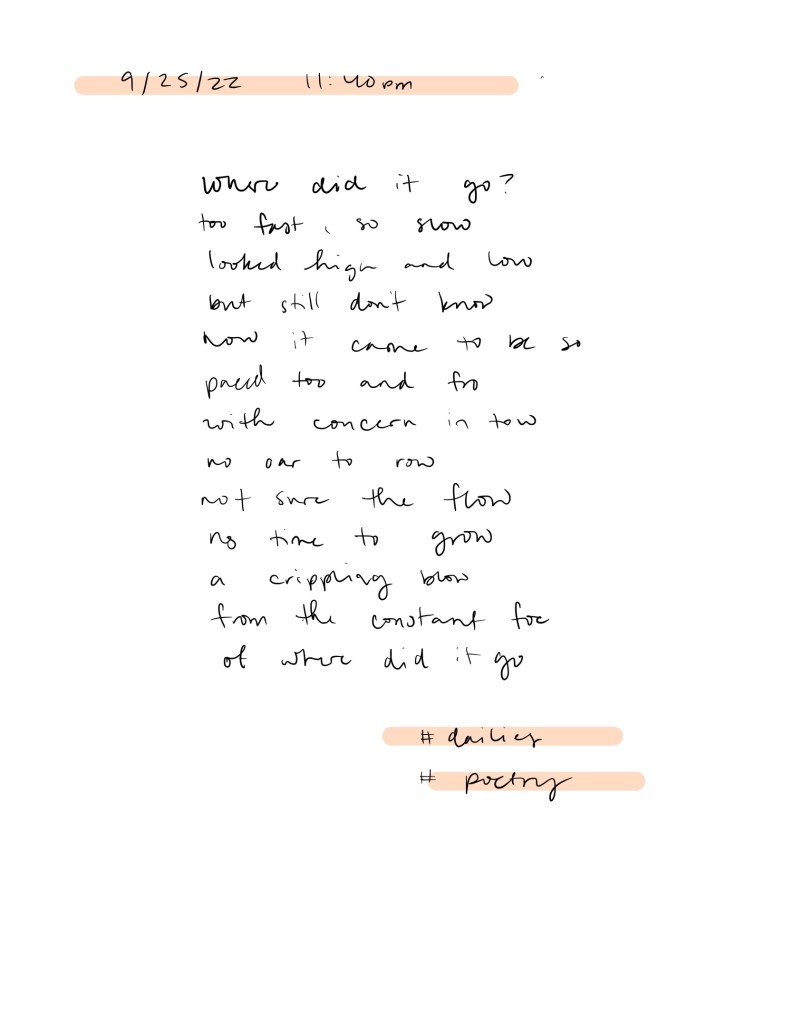 9/25/22 11:40pm
where did it go?
too fast, so slow
looked high and low
but still don't know
how it came to be so
paced too and fro
with concern in tow
no oar to row
not sure the flow
no time to grow
a crippling blow
from the constant foe
of where did it go
# dailies
# poetry